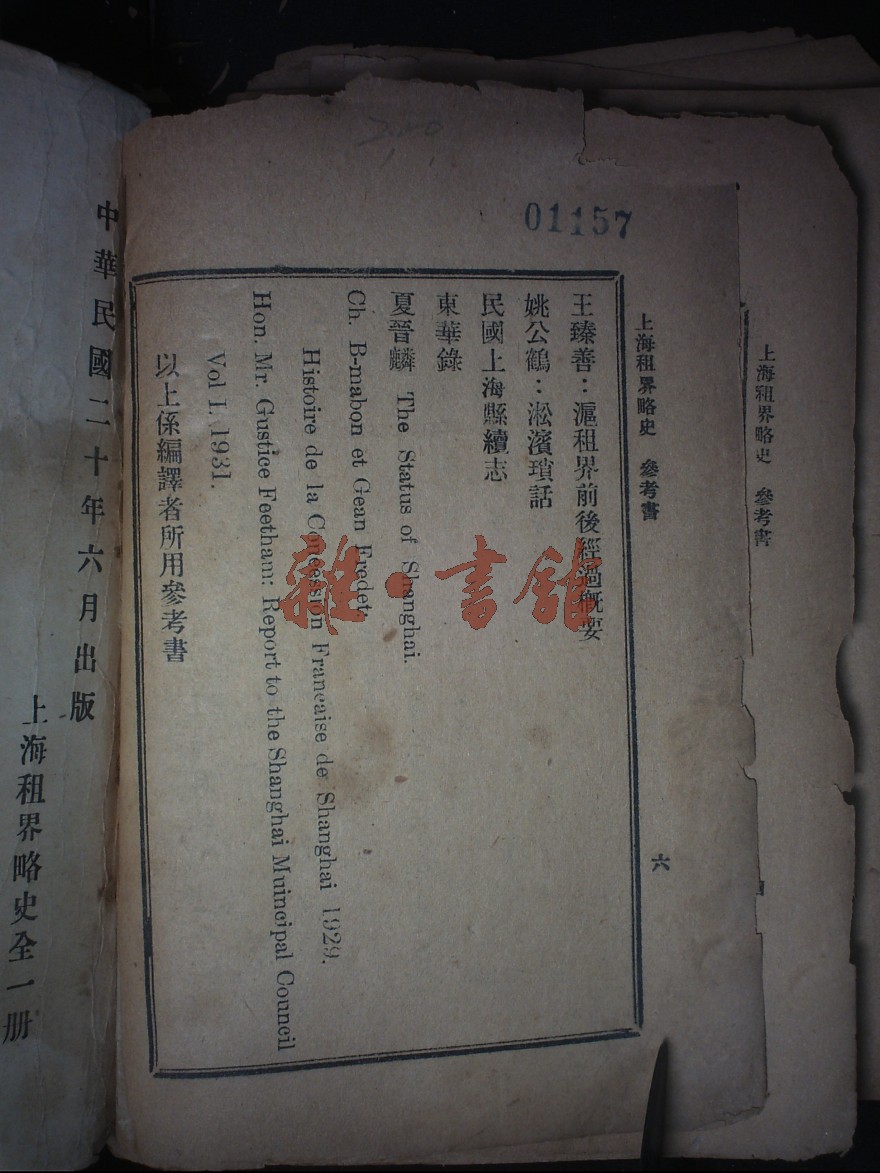 01157
上海租界略史　參考書
四
上海租界略史　參考書
六
王臻善：滬租界前後經過概要
姚公鶴：淞濱瑣話
民國上海縣續志
東華錄
夏晉麟　The Status of Shanghai.
Ch. B-mabon et Gean Fredet:
Histoire de la Concession Francaise de Shanghai 1929.
Hon. Mr. Gustice Feetham: Report to the Shanghai Muincipal Council
Vol I. 1931.
以上係編譯者所用參考書
中華民國二十年六月出版
上海租界略史全一册
雜·書館